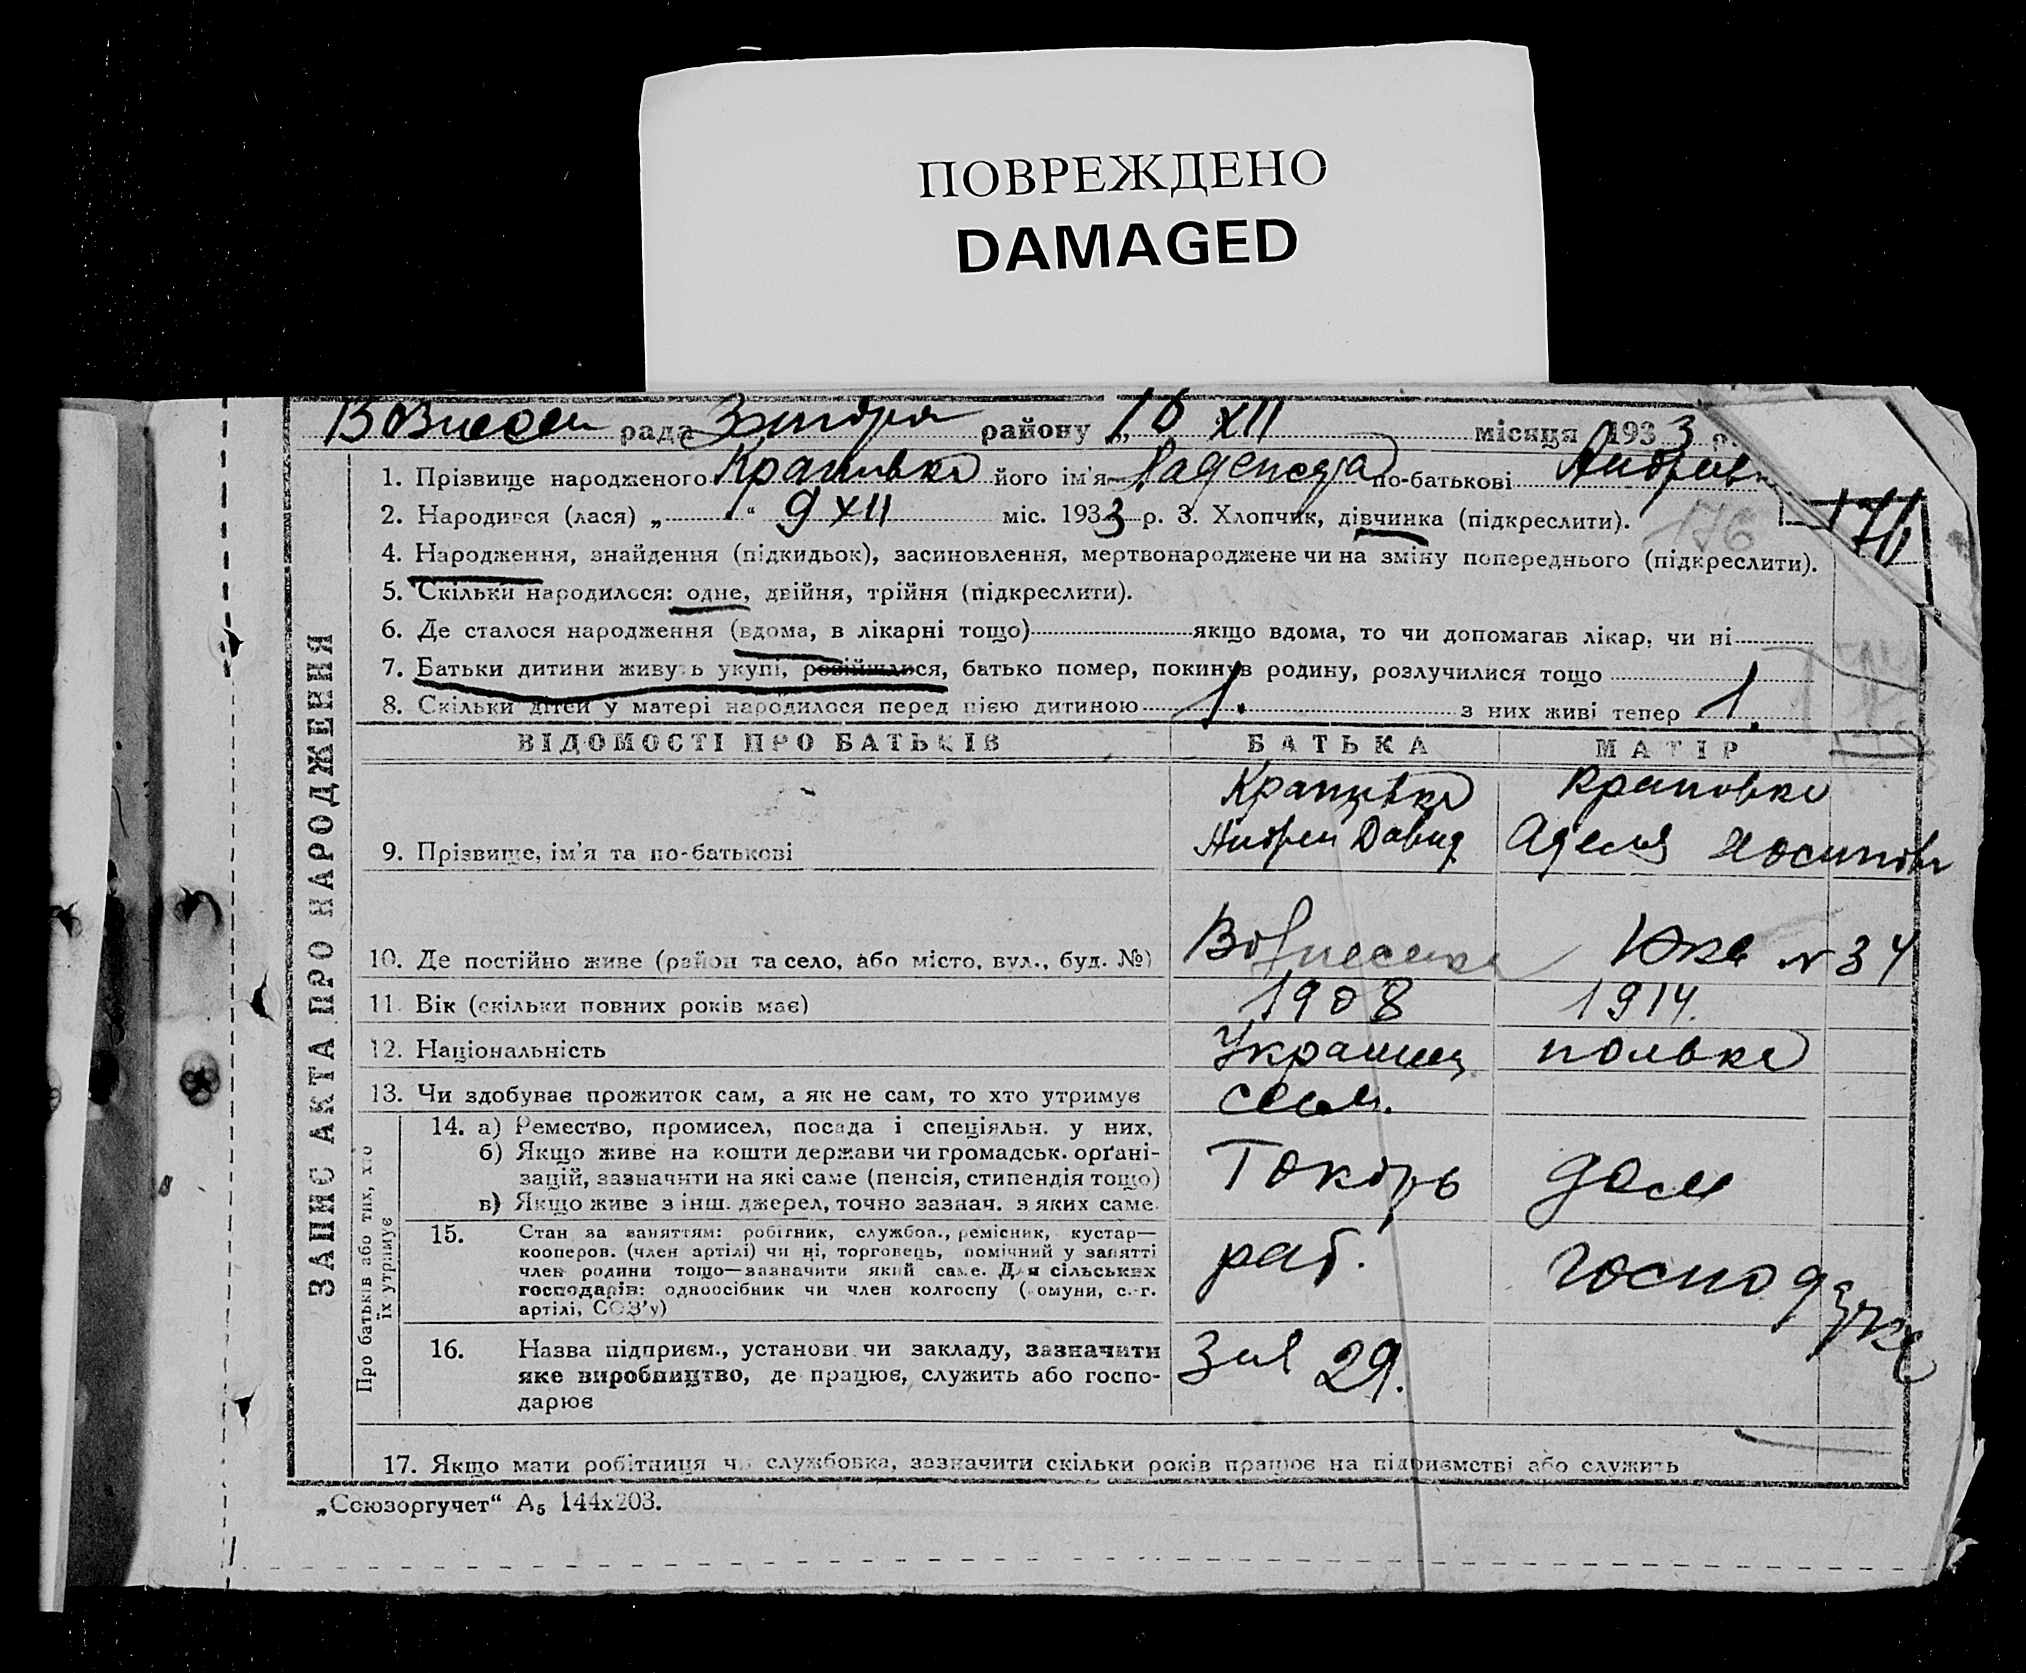 ПОВРЕЖДЕНО
DAMAGED
рада района району 10 XII місяця 1933 р.
1. Прізвище народженого Крапивка його ім'я Надежда по-батькові Андріївн
2. Народився (лася) „ “ 9 XII міс. 1933 р. 3. Хлопчик, дівчинка (підкреслити). 176 176
4. Народження, знайдення (підкидьок), засиновлення, мертвонароджене чи на зміну попереднього (підкреслити).
5. Скільки народилося: одне, двійня, трійня (підкреслити).
6. Де сталося народження (вдома, в лікарні тощо) якщо вдома, то чи допомагав лікар, чи ні
7. Батьки дитини живуть укупі, розійшлися, батько помер, покинув родину, розлучилися тощо
8. Скільки дітей у матері народилося перед цією дитиною 1. з них живі тепер 1.
ВІДОМОСТІ ПРО БАТЬКІВ БАТЬКА МАТІР
Крапивка Крапивка
9. Прізвище, ім'я та по-батькові Андрей Давид Аделя Иосипов
10. Де постійно живе (район та село, або місто, вул., буд. №) Вознесенка № 34
11. Вік (скільки повних років має) 1908 1914.
12. Національність Українец полька
13. Чи здобуває прожиток сам, а як не сам, то хто утримує сам.
14. а) Ремество, промисел, посада і спеціяльн. у них.
б) Якщо живе на кошти держави чи громадськ. орґані-
зацій, зазначити на які саме (пенсія, стипендія тощо) Токарь дом
в) Якщо живе з інш. джерел, точно зазнач. з яких саме.
15. Стан за заняттям: робітник, службов., ремісник, кустар—
кооперов. (член артілі) чи ні, торговець, помічний у занятті
член родини тощо—зазначити який саме. Для сільських
господарів: одноосібник чи член колгоспу (комуни, с.-г.
артілі, СОЗ'у) раб. господарка
16. Назва підприєм., установи чи закладу, зазначити
яке виробництво, де працює, служить або госпо-
дарює 29.
17. Якщо мати робітниця чи службовка, зазначити скільки років працює на підприємстві або служить
„Союзоргучет“ А5 144х203.
ЗАПИС АКТА ПРО НАРОДЖЕННЯ
Про батьків або тих, хто
їх утримує